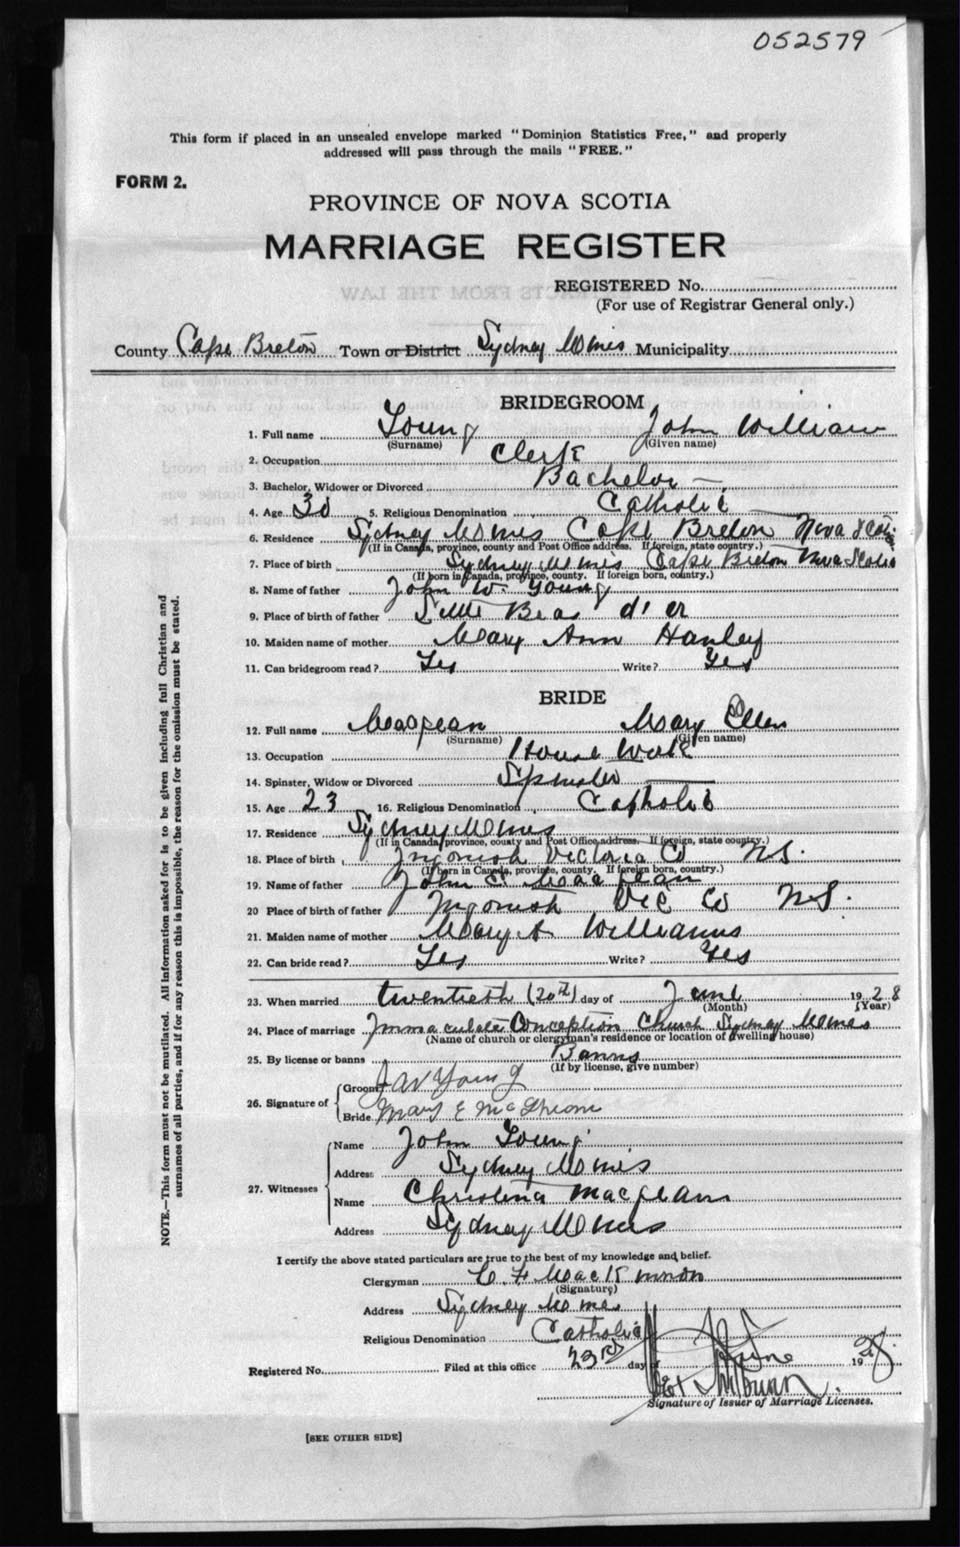 052579
This form if placed in an unsealed envelope marked "Dominion Statistics Free," and properly
addressed will pass through the mails "FREE."
FORM 2.
PROVINCE OF NOVA SCOTIA
MARRIAGE REGISTER
REGISTERED No.
(For use of Registrar General only.)
County Cape Breton Town or District Sydney Mines Municipality
BRIDEGROOM
1. Full name Young John William
(Surname) (Given name)
2. Occupation Clerk
3. Bachelor, Widower or Divorced Bachelor
4. Age 30 5. Religious Denomination Catholic
6. Residence Sydney Mines Cape Breton Nova Scotia
(If in Canada, province, county and Post Office address. If foreign, state country.)
7. Place of birth Sydney Mines Cape Breton Nova Scotia
(If born in Canada, province, county. If foreign born, country.)
8. Name of father John W. Young
9. Place of birth of father Little Bras d'or
10. Maiden name of mother Mary Ann Hanley
11. Can bridegroom read? Yes Write? Yes
BRIDE
12. Full name Mary Ellen
(Surname) (Given name)
13. Occupation House Work
14. Spinster, Widow or Divorced Spinster
15. Age 23 16. Religious Denomination Catholic
17. Residence Sydney Mines
(If in Canada, province, county and Post Office address. If foreign, state country.)
18. Place of birth Ingonish Victoria Co N.S.
(If born in Canada, province, county. If foreign born, country.)
19. Name of father John
20 Place of birth of father Ingonish Vic Co N.S.
21. Maiden name of mother Mary A Williams
22. Can bride read? Yes Write? Yes
23. When married twentieth (20th) day of June 1928
(Month) (Year)
24. Place of marriage Immaculate Conception Church Sydney Mines
(Name of church or clergyman's residence or location of dwelling house)
25. By license or banns Banns
(If by license, give number)
26. Signature of
Groom J W Young
Bride Mary E
27. Witnesses
Name John Young
Address Sydney Mines
Name Christina
Address Sydney Mines
I certify the above stated particulars are true to the best of my knowledge and belief.
Clergyman C. F. MacKinnon
(Signature)
Address Sydney Mines
Religious Denomination Catholic
Registered No. Filed at this office 23rd day of June 1928.
Signature of Issuer of Marriage Licenses.
[SEE OTHER SIDE]
NOTE.—This form must not be mutilated. All information asked for is to be given including full Christian and
surnames of all parties, and if for any reason this is impossible, the reason for the omission must be stated.